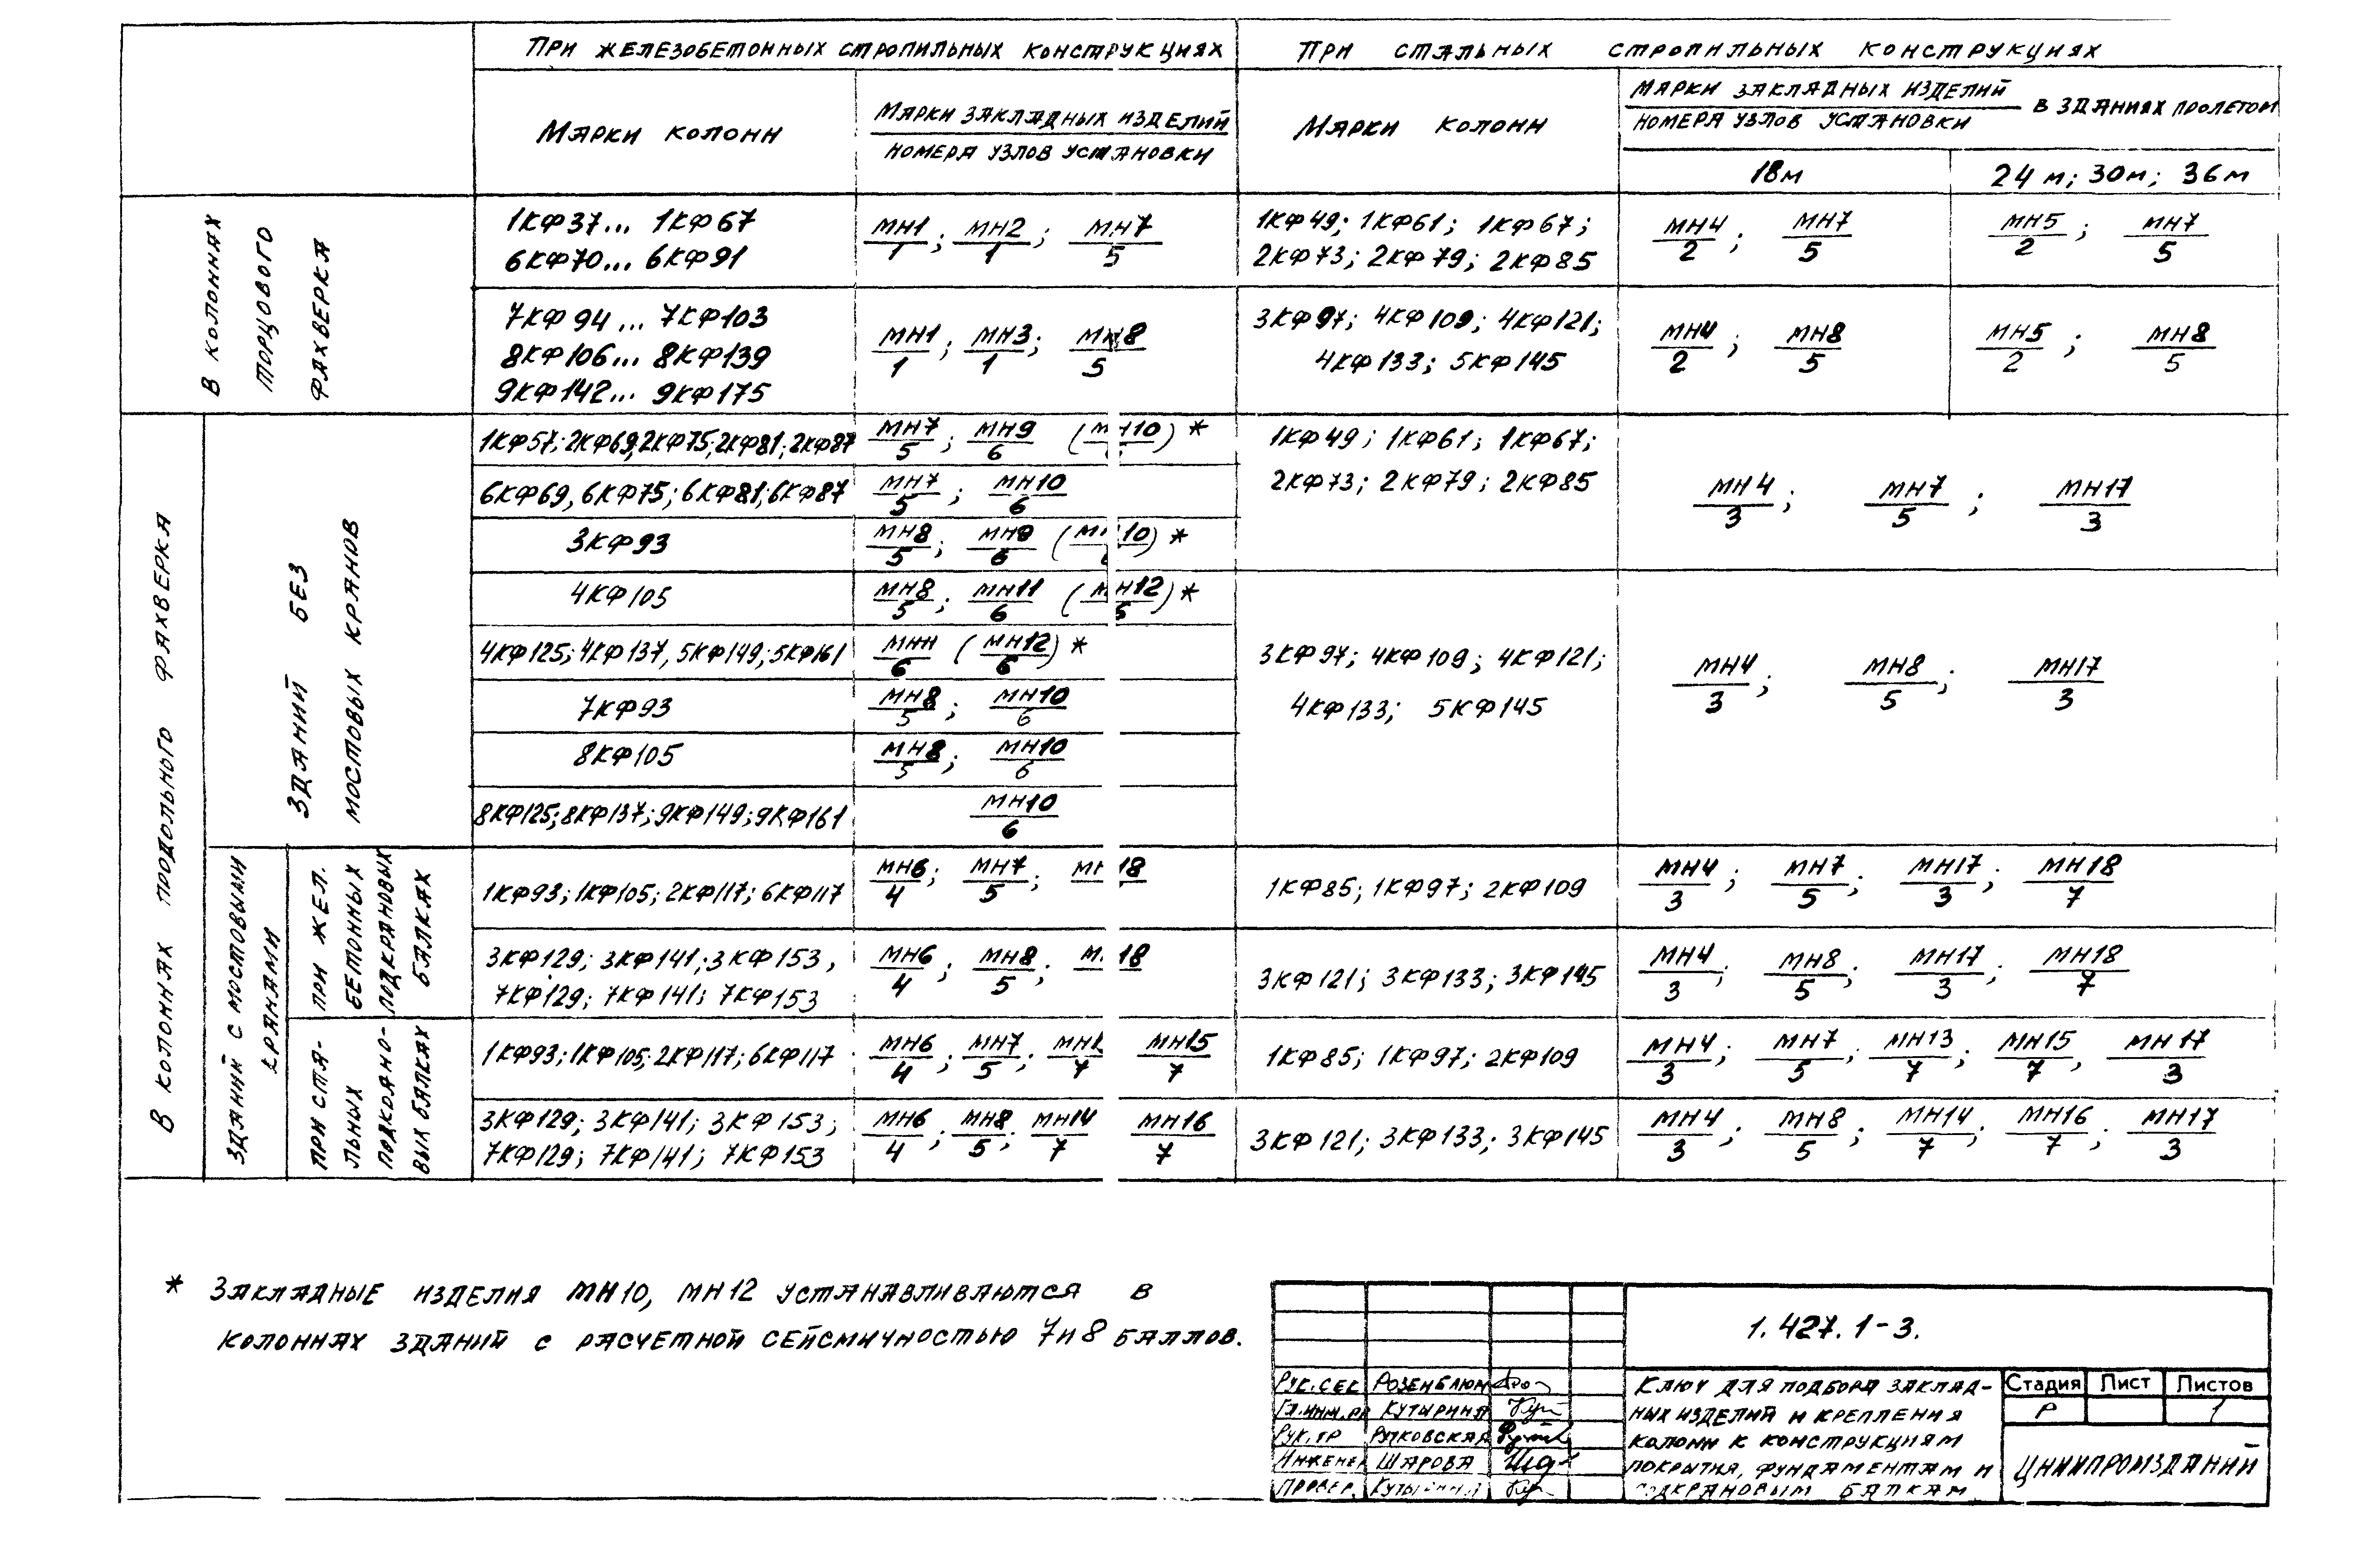 При железобетонных стропильных конструкциях
При стальных стропильных конструкциях
Марки колонн
Марки закладных изделий
номера узлов установки
Марки колонн
Марки закладных изделий
номера узлов установки
в зданиях пролетом
18м
24м; 30м; 36м
В колоннах
торцового
фахверка
1КФ37... 1КФ67
6КФ70... 6КФ91
МН1/1; МН2/1; МН7/5
1КФ49; 1КФ61; 1КФ67;
2КФ73; 2КФ79; 2КФ85
МН4/2; МН7/5
МН5/2; МН7/5
7КФ94... 7КФ103
8КФ106... 8КФ139
9КФ142... 9КФ175
МН1/1; МН3/1; МН8/5
3КФ97; 4КФ109; 4КФ121;
4КФ133; 5КФ145
МН4/2; МН8/5
МН5/2; МН8/5
В колоннах продольного фахверка
зданий без
мостовых кранов
1КФ57; 2КФ69; 2КФ75; 2КФ81; 2КФ87
МН7/5; МН9/6 (МН10)*
6КФ69, 6КФ75; 6КФ81; 6КФ87
МН7/5; МН10/6
3КФ93
МН8/5; МН9/6 (МН10)*
4КФ105
МН8/5; МН11/6 (МН12/5)*
4КФ125; 4КФ137, 5КФ149; 5КФ161
МН11/6 (МН12/6)*
7КФ93
МН8/5; МН10/6
8КФ105
МН8/5; МН10/6
8КФ125; 8КФ137; 9КФ149; 9КФ161
МН10/6
1КФ49; 1КФ61; 1КФ67;
2КФ73; 2КФ79; 2КФ85
МН4/3; МН7/5; МН17/3
3КФ97; 4КФ109; 4КФ121;
4КФ133; 5КФ145
МН4/3; МН8/5; МН17/3
зданий с мостовыми
кранами
при жел.
бетонных
подкрановых
балках
1КФ93; 1КФ105; 2КФ117; 6КФ117
МН6/4; МН7/5; МН18
1КФ85; 1КФ97; 2КФ109
МН4/3; МН7/5; МН17/3; МН18/7
3КФ129; 3КФ141; 3КФ153,
7КФ129; 7КФ141; 7КФ153
МН6/4; МН8/5; М 18
3КФ121; 3КФ133; 3КФ145
МН4/3; МН8/5; МН17/3; МН18/7
при ста-
льных
подкрано-
вых балках
1КФ93; 1КФ105; 2КФ117; 6КФ117
МН6/4; МН7/5; МН1 /7 МН15/7
1КФ85; 1КФ97; 2КФ109
МН4/3; МН7/5; МН13/7; МН15/7, МН17/3
3КФ129; 3КФ141; 3КФ153;
7КФ129; 7КФ141; 7КФ153
МН6/4; МН8/5; МН14/7 МН16/7
3КФ121; 3КФ133; 3КФ145
МН4/3; МН8/5; МН14/7; МН16/7; МН17/3
* Закладные изделия МН10, МН12 устанавливаются в
колоннах зданий с расчетной сейсмичностью 7 и 8 баллов.
1.427.1-3.
Рук.сек Розенблюм
Гл.инж.пр Кутырина
Рук.гр Рутковская
Инженер Шарова
Провер. Кутырина
Ключ для подбора заклад-
ных изделий и крепления
колонн к конструкциям
покрытия, фундаментам и
подкрановым балкам
Стадия Лист Листов
Р 1
ЦНИИПРОМЗДАНИЙ